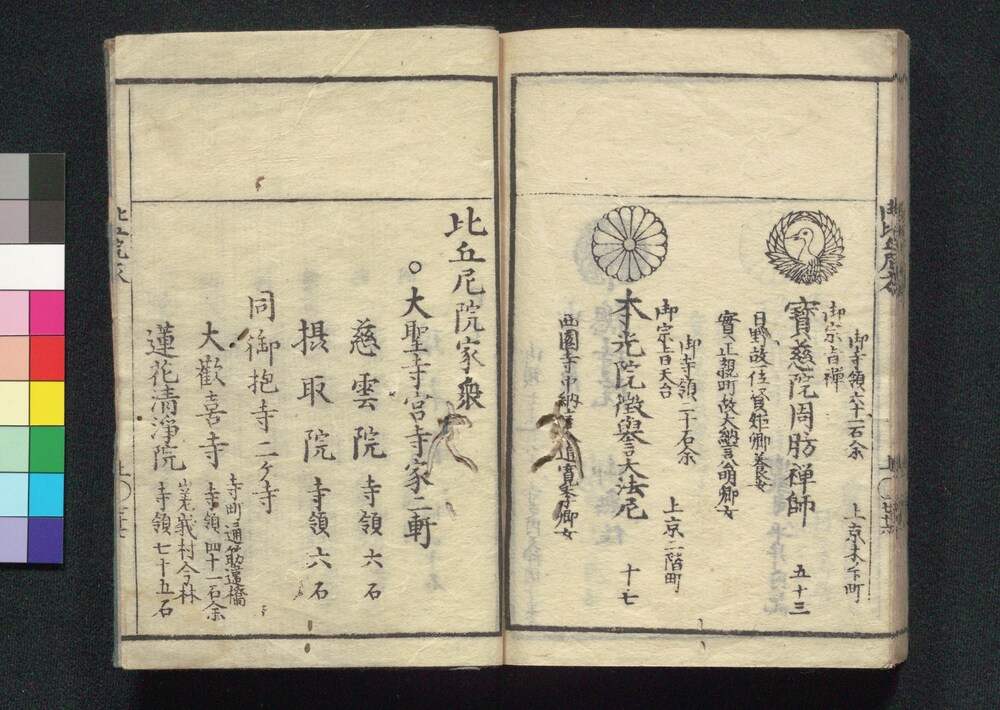 御寺領六十一石余　上京木ノ下町
御宗旨禅
寶慈院周肪禅師　五十三
日野故一位資矩卿養女
實正親町故大納言卿女
御寺領二十石余　上京二階町
御宗旨天台
本光院徴譽大法尼　十七
西園寺中納言寛季卿女
比丘尼院家衆
○大聖寺宮寺家二軒
慈雲院　寺領六石
摂取院　寺領六石
同御抱寺二ケ寺
寺町通筋違橋
大歡喜寺　寺領四十一石余
嵯峨村今林
蓮花清浄院　寺領七十五石